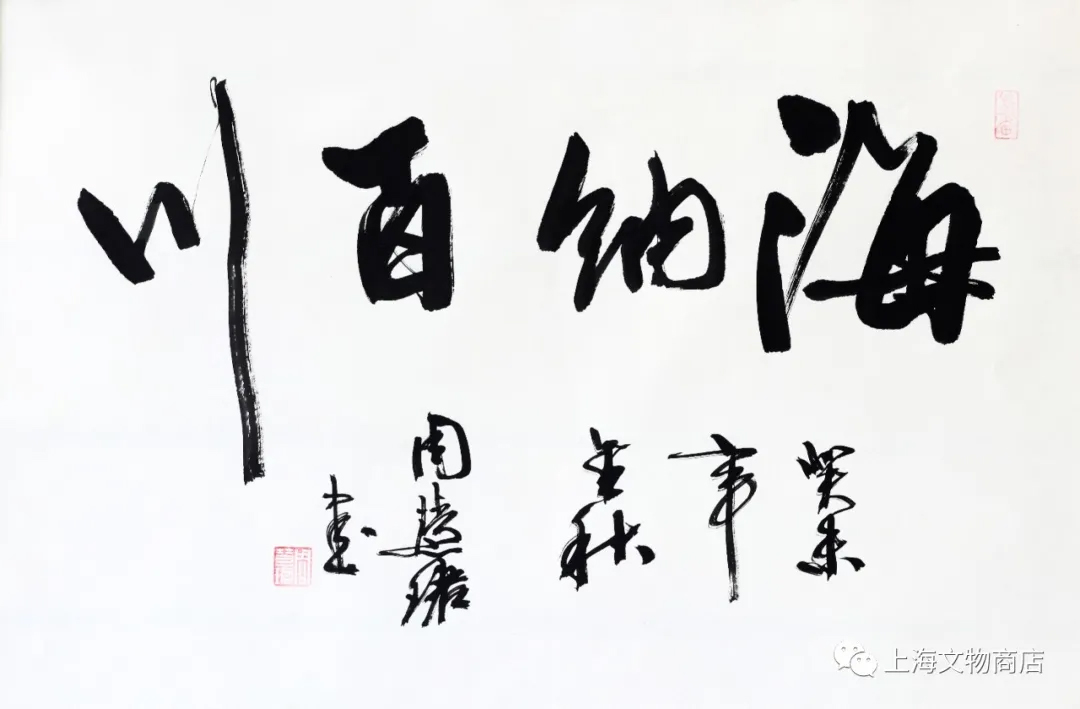 海纳百川
癸未
年
金秋
周慧珺
书
上海文物商店